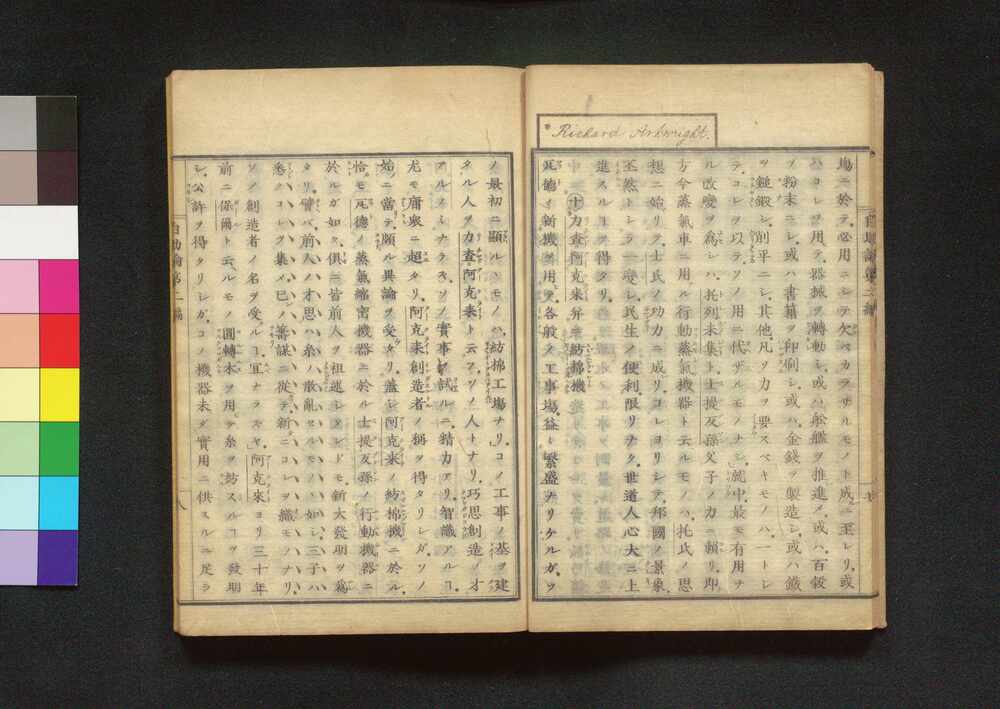 Richard Arkwright.
場ニ於テ必用ニシテ欠ベカラザルモノト成ニ至レリ或
ハコレヲ用テ器械ヲ轉動シ或ハ船艦ヲ推進メ或ハ百穀
ヲ粉末ニシ或ハ書籍ヲ印刷シ或ハ金錢ヲ製造シ或ハ鐵
ヲ鎚鍛シ削平ニシ其他凡ソ力ヲ要スベキモノハ一トシ
テコレヲ以テソノ用ニ代ザルモノナシ就中最モ有用ナ
ル改變ヲ爲シハ托列未集ト士提反孫父子ノ力ニ賴リ即
方今蒸氣車ニ用ル行動蒸氣機器ト云ルモノハ托氏ノ思
想ニ始リテ士氏ノ功力ニ成リコレヨリシテ邦國ノ景象
丕然トシテ一變シ民生ノ便利限リナク世道人心大ニ上
進スルコヲ得タリ
十 力査阿克來弁ニ紡棉機
瓦德ノ新機ヲ用テ各般ノ工事場益々繁盛ナリケルガソ
ノ最初ニ顯ルヽモノハ紡棉工場ナリコノ工事ノ基ヲ建
タル人ヲ力査阿克來ト云フソノ人トナリ巧思創造ノ才
アルノミナラズソノ實事ニ試ルニ精力アリ智識アルコ
尤モ庸衆ニ超タリ阿克來創造者ノ稱ヲ得タリシガソノ
始ニ當テ頗ル異論ヲ受タリ蓋シ阿克來ノ紡棉機ニ於ル
恰モ瓦德ノ蒸氣縮密機器ニ於ル士提反孫ノ行動機器ニ
於ルガ如ク俱ニ皆前人ヲ祖述シタレドモ新大發明ヲ爲
タリ譬バ前人ハ才思ハ糸ハ散亂セルモノハ如シ三子ハ
悉ハコレヲ集メ已レノ籌謀ニ從テ新ニコレヲ織モノナリ
ソノ創造者ノ名ヲ受ルコ宜ナラズヤ阿克來ヨリ三十年
前ニ保爾ト云ルモノ圓轉木ヲ用テ糸ヲ紡スルコヲ發明
シ公許ヲ得タリシガコノ機器未ダ實用ニ供スルニ足ラ
八